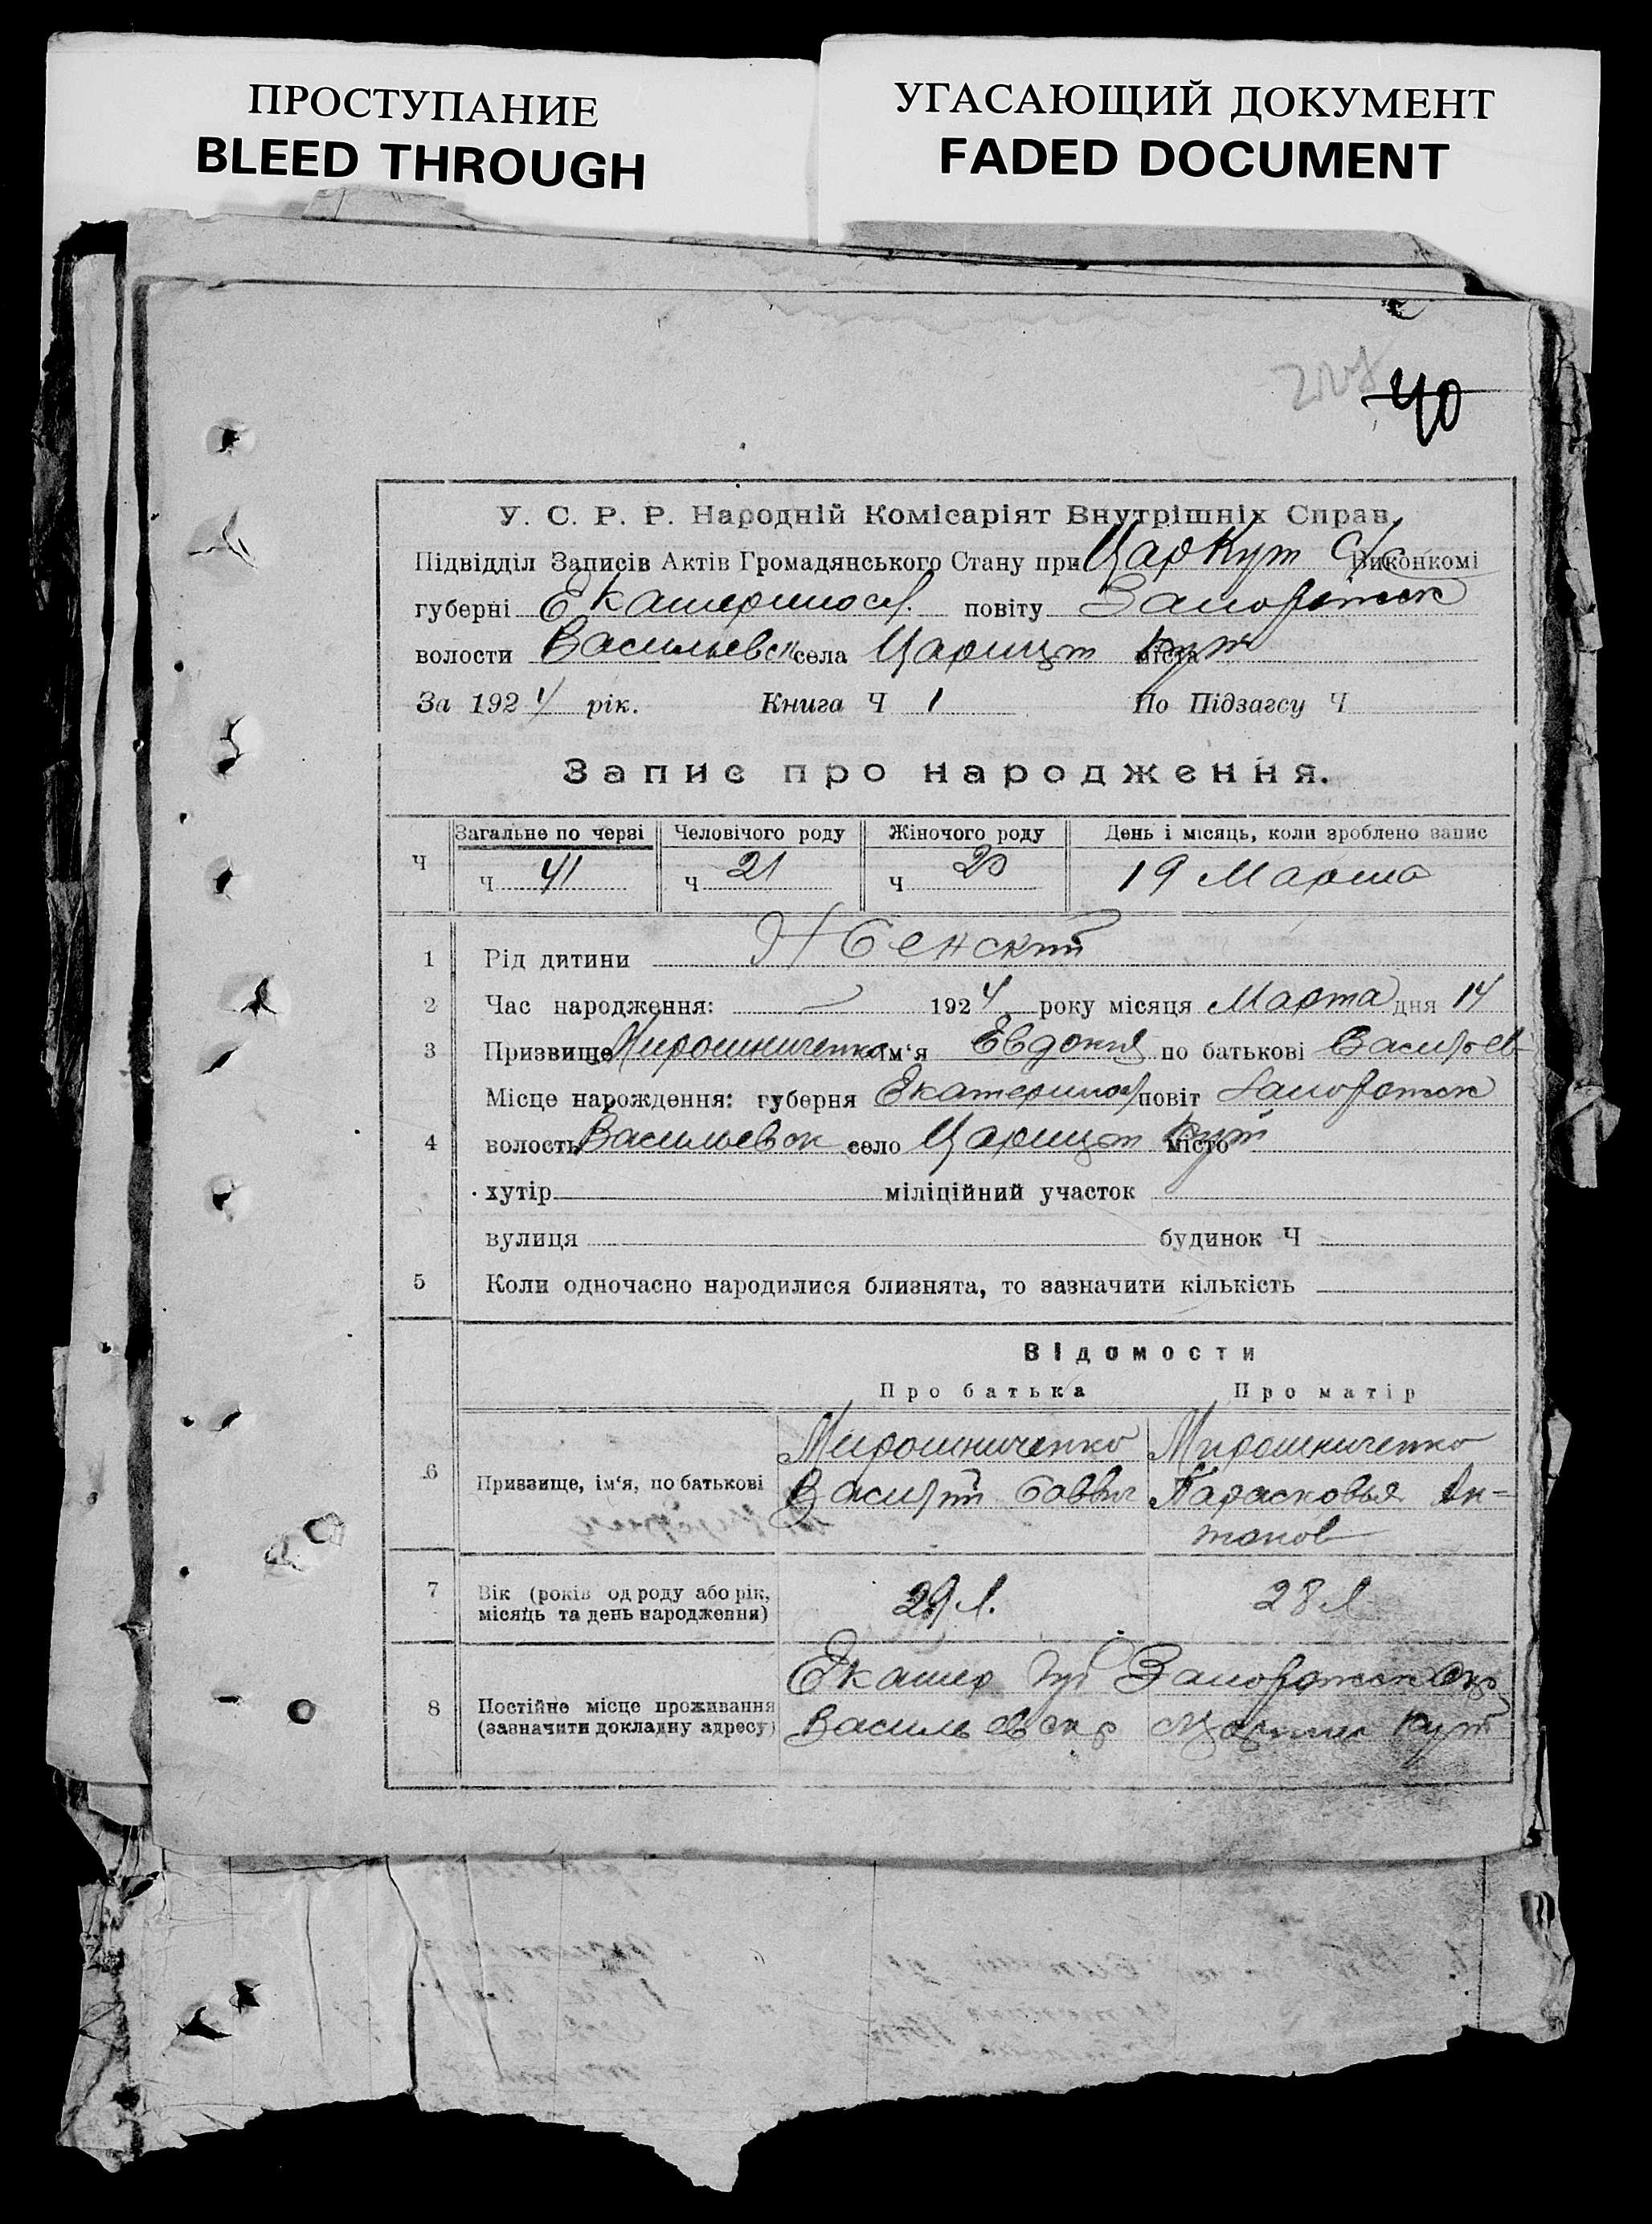 ПРОСТУПАНИЕ
BLEED THROUGH
УГАСАЮЩИЙ ДОКУМЕНТ
FADED DOCUMENT
40
У. С. Р. Р. Народній Комісаріят Внутрішніх Справ.
Підвідділ Записів Актів Громадянського Стану при ЦарКут С/С Виконкомі
губерні Екатериносл. повіту Запорожск
волости Васильевск села Царицт Кут міста
За 1924 рік. Книга Ч 1 По Підзагсу Ч
Запис про народження.
Загальне по черзі Человічого роду Жіночого роду День і місяць, коли зроблено запис
Ч Ч 41 Ч 21 Ч 20 19 Марта
1 Рід дитини Женский
2 Час народження: 1924 року місяця Марта дня 14
3 Призвище Мирошниченко ім‘я Евдокия по батькові Васильев
Місце народження: губерня Екатеринос повіт Запорожск
4 волость Васильевск село Царицт Кут місто
хутір міліційний участок
вулиця будинок Ч
5 Коли одночасно народилися близнята, то зазначити кількість
Відомости
Про батька Про матір
6 Призвище, ім‘я, по батькові
Мирошниченко Мирошниченко
Василий Саввич Парасковья Ан-
тонов
7 Вік (років од роду або рік, місяць та день народження) 29 л. 28 л
8 Постійне місце проживання (зазначити докладну адресу)
Екатер Губ Запорожск Окр
Васильевск р Кут